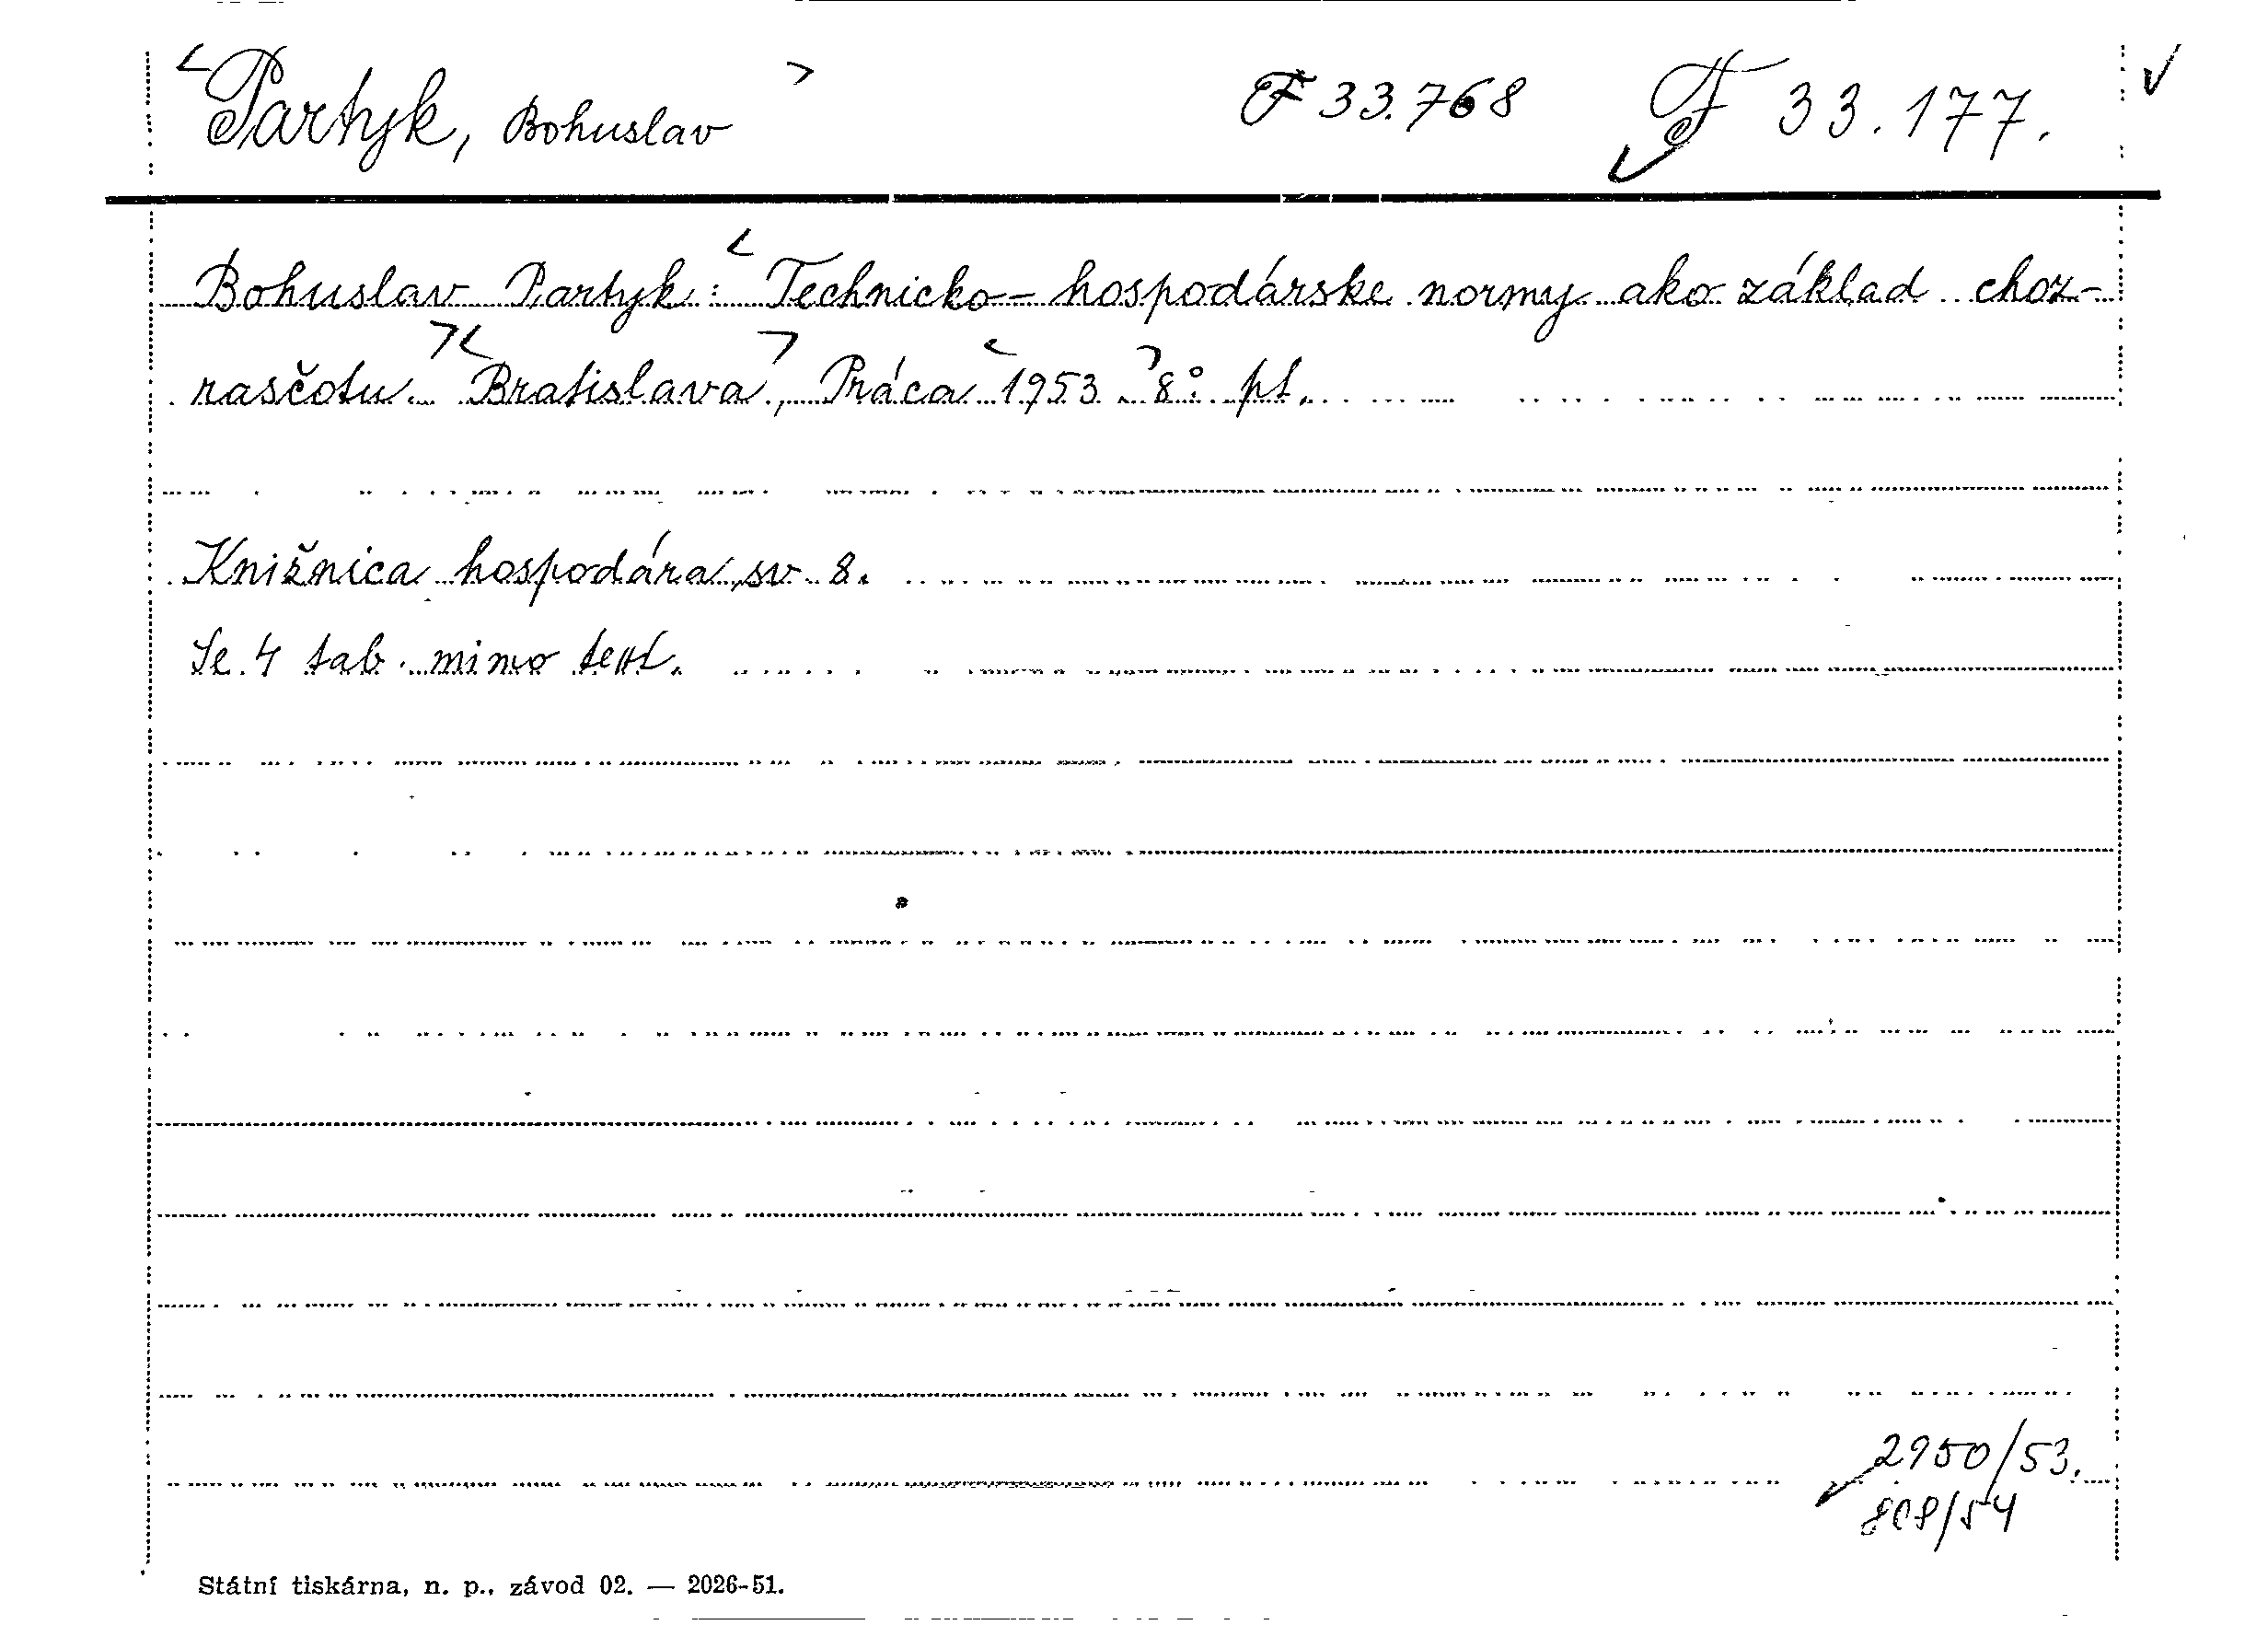 Partyk, Bohuslav F 33.768 F 33.177.
Bohuslav Partyk: Technicko-hospodárske normy ako základ choz-
rasčotu. Bratislava, Práca 1953. 8° pt.
Knižnica hospodára, sv. 8.
Se 4 tab. mimo text.
2950/53.
808/54
Státní tiskárna, n. p., závod 02. — 2026-51.